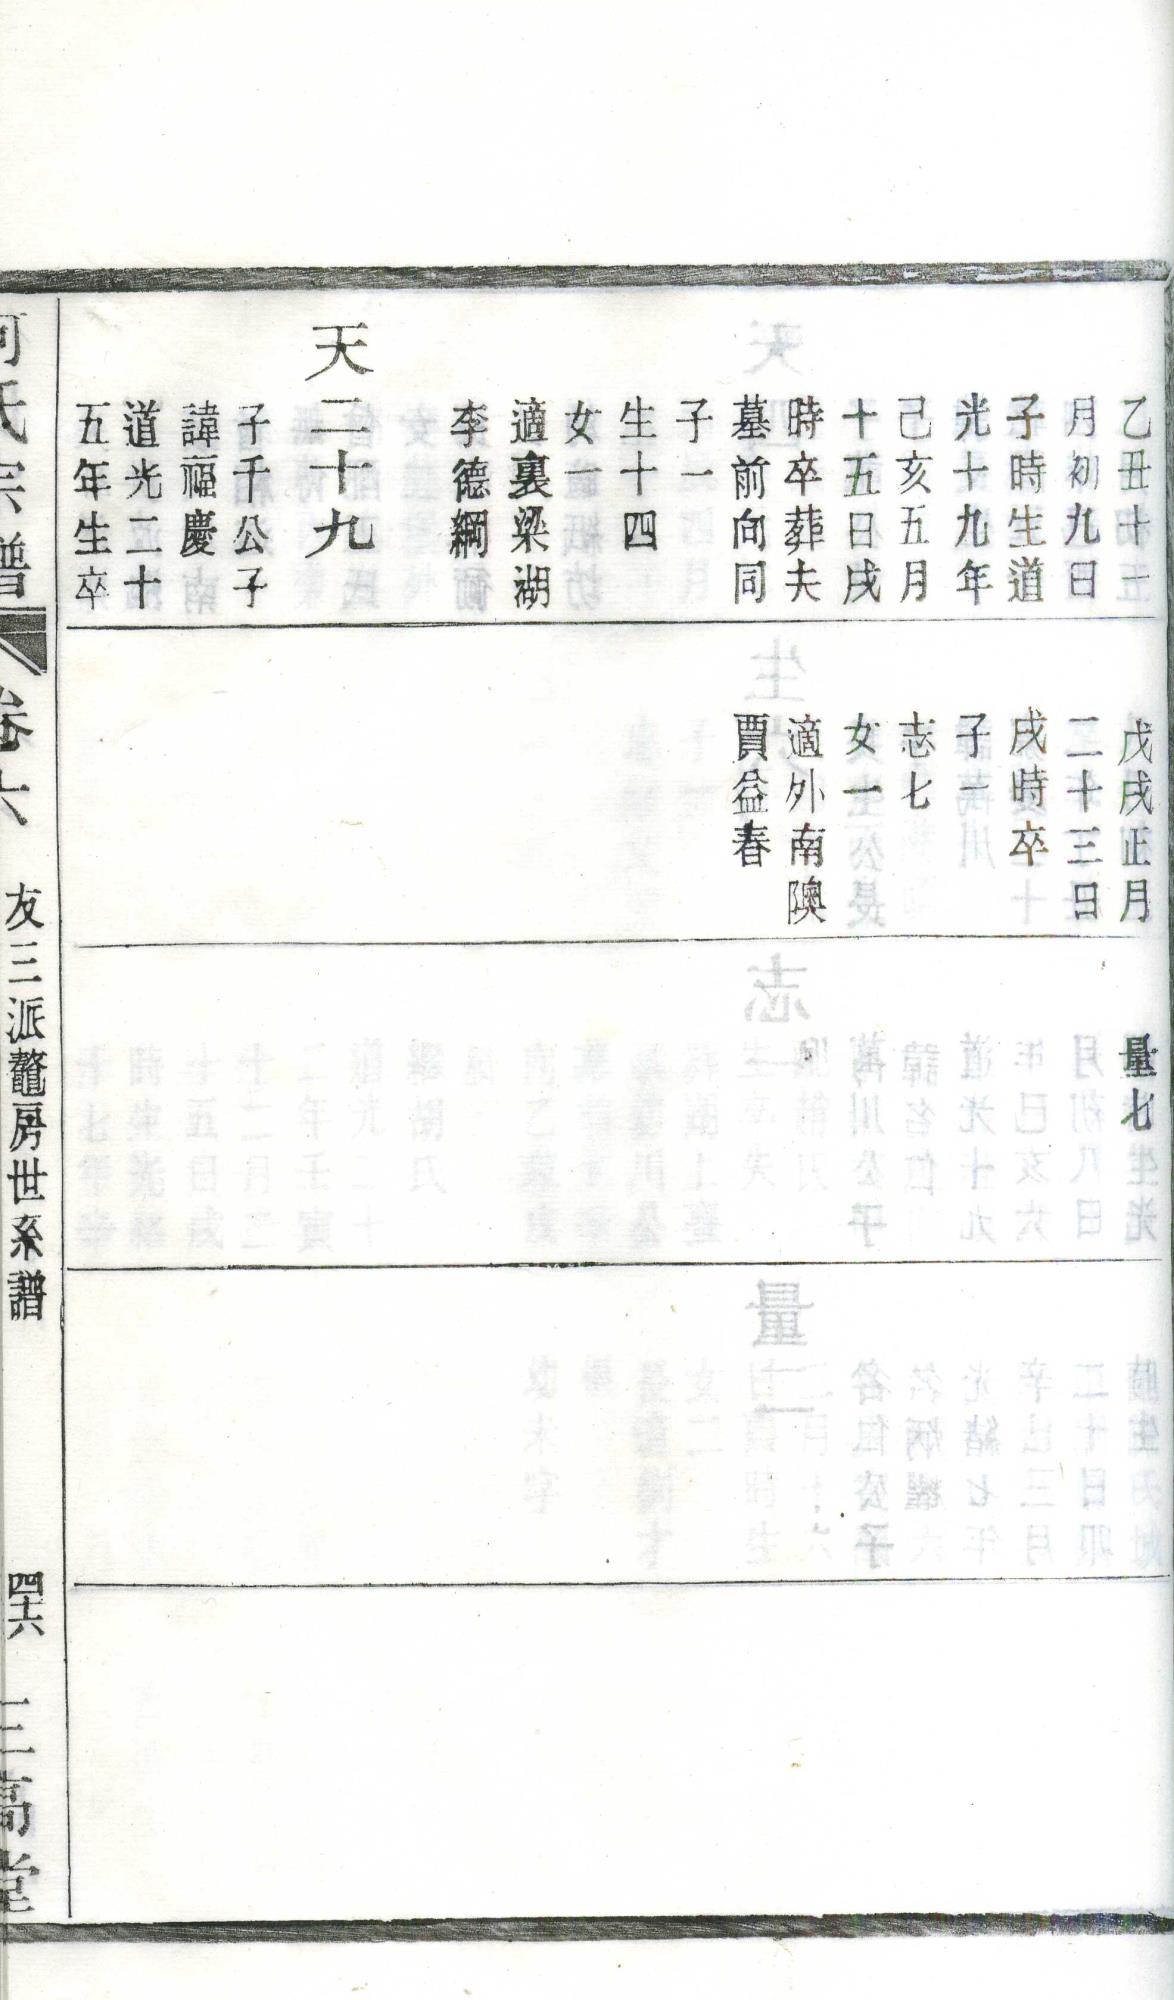 乙丑十一
月初九日
子時生道
光十九年
己亥五月
十五日戌
時卒葬夫
墓前向同
子一
生十四
女一
適裏梁湖
李德綱
天二十九
子千公子
諱福慶
道光二十
五年生卒
戊戌正月
二十三日
戌時卒
子一
志七
女一
適外南隩
賈益春
量七
何氏宗譜
卷六
友三派鼇房世系譜
四十六
三高堂